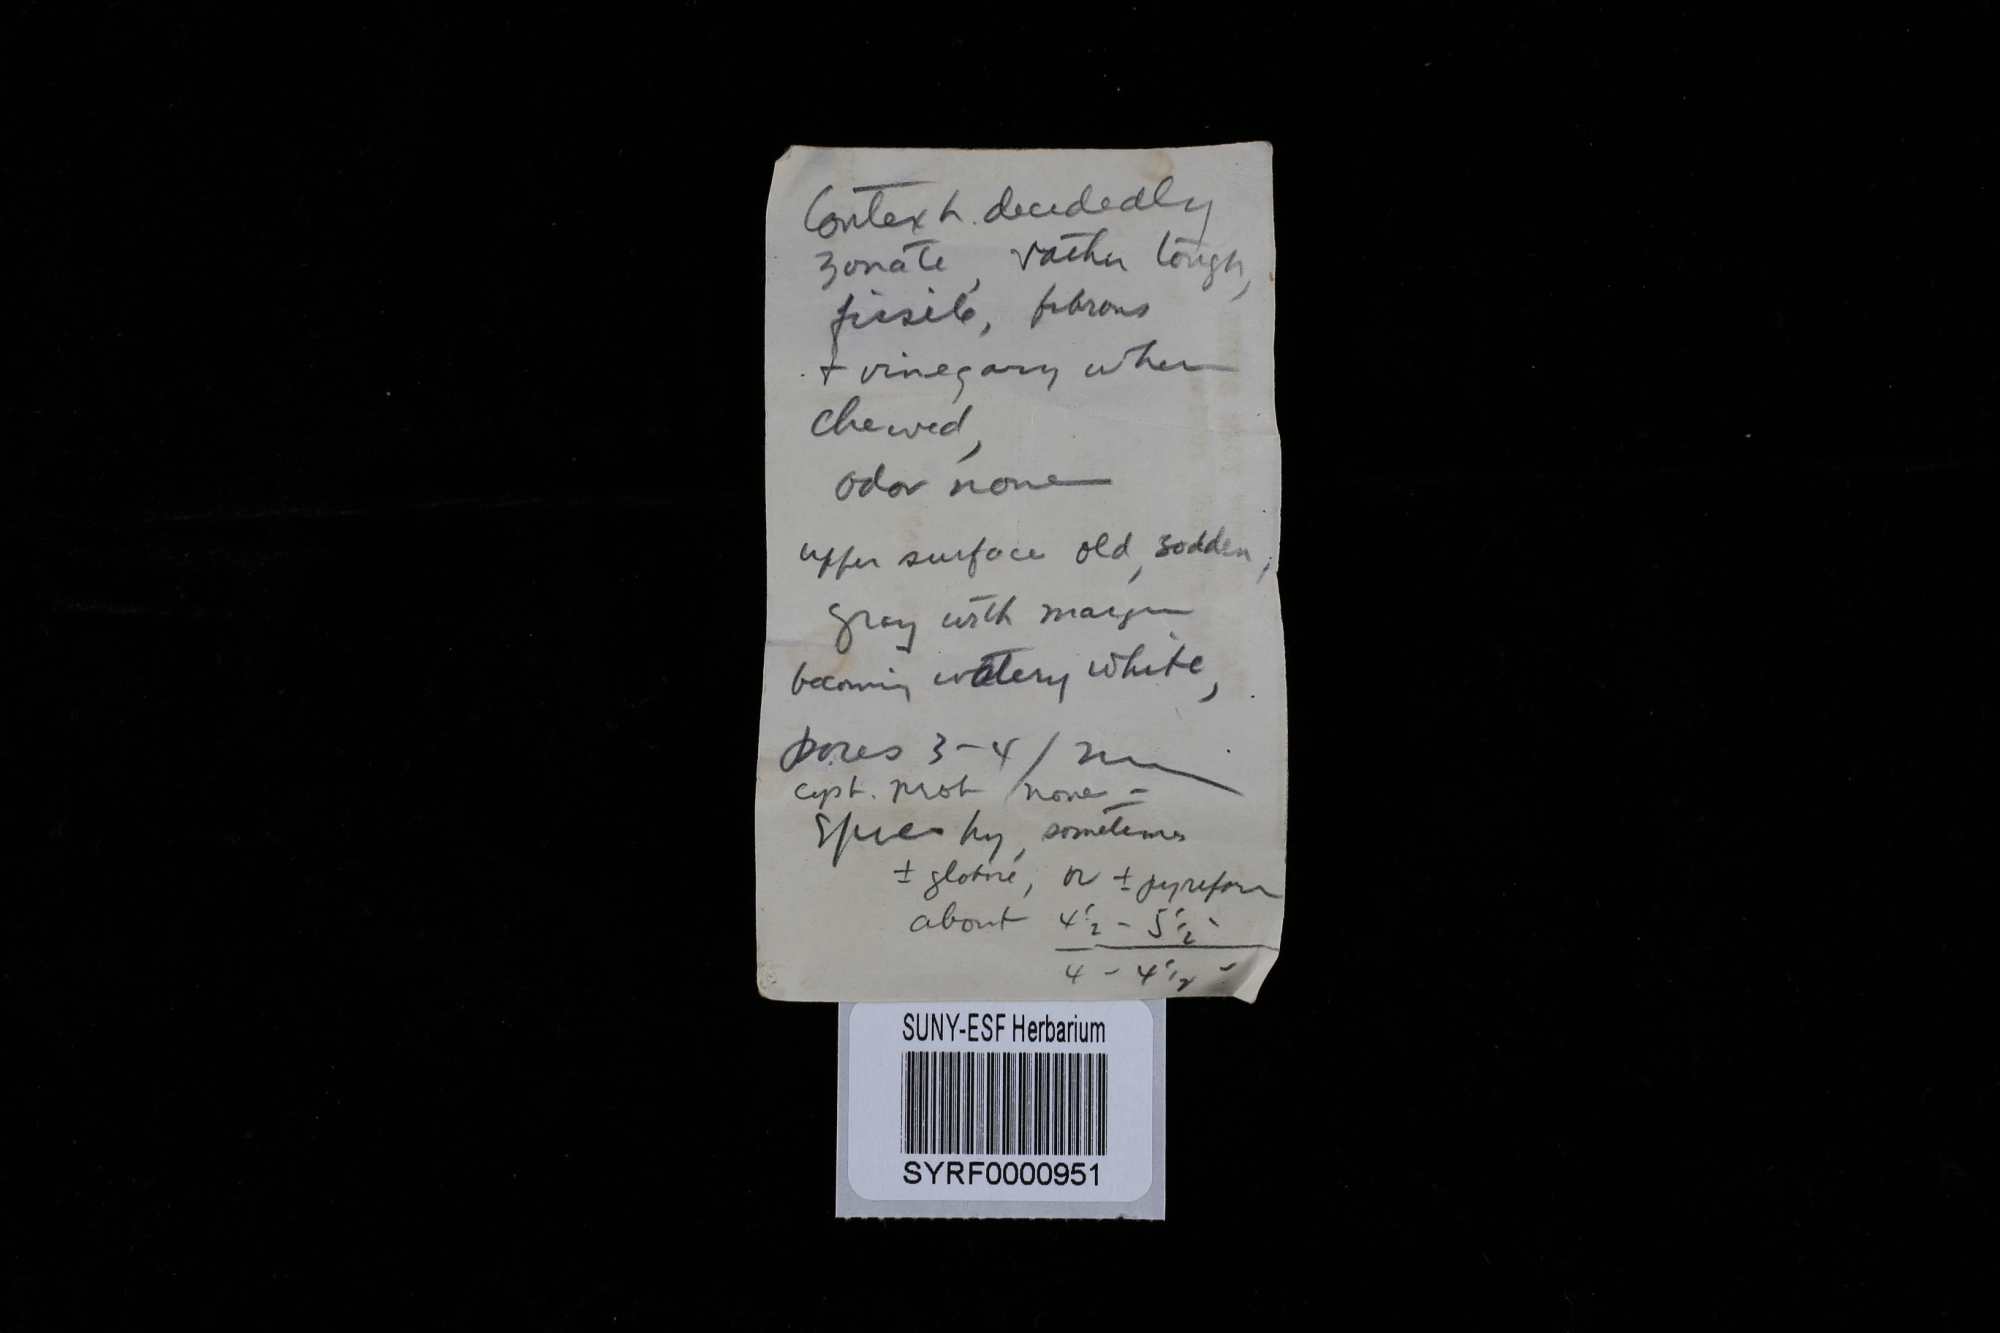 Context decidedly
zonate, rather tough,
fissile, fibrous
+ vinegary when
chewed,
odor none
upper surface old, sodden,
gray with margin
becoming watery white,
pores 3-4/mm
cyst. not none =
Spores hy, sometimes
± globose, or ± pyriform
about 4 1/2 - 5 1/2 -
4 - 4 1/2 -
SUNY-ESF Herbarium
SYRF0000951